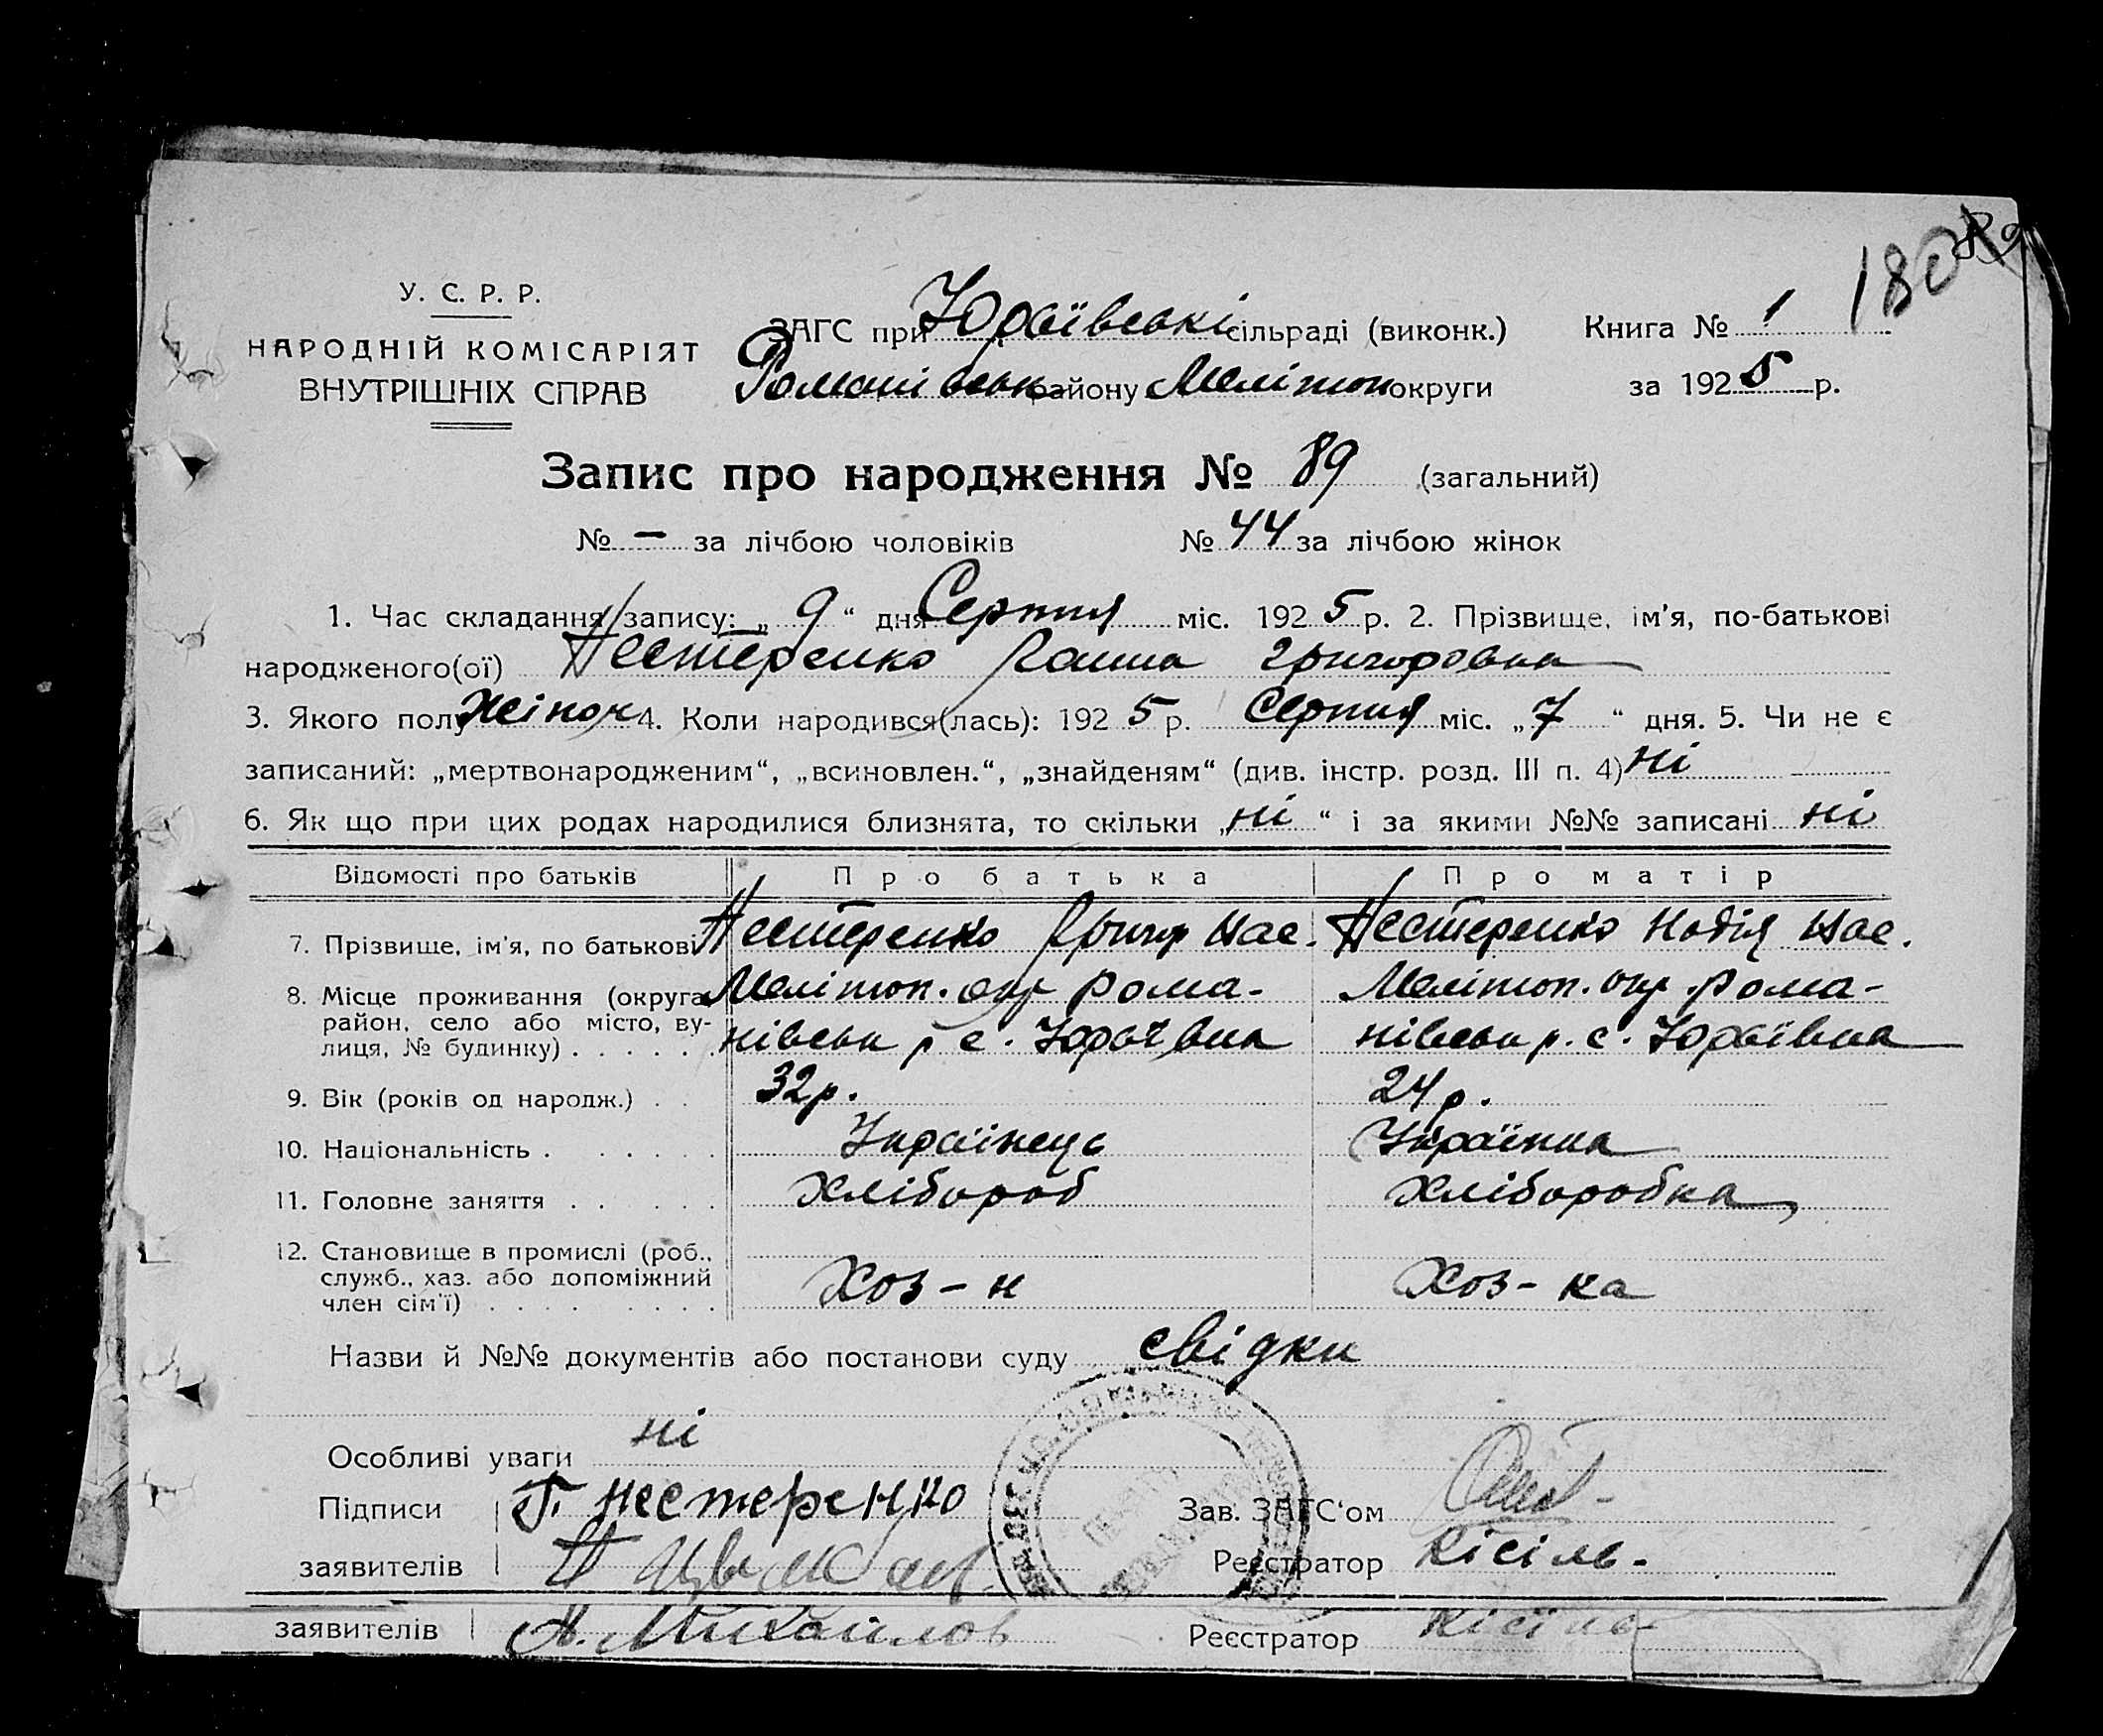 180
У. С. Р. Р.
НАРОДНІЙ КОМІСАРІЯТ
ВНУТРІШНІХ СПРАВ
ЗАГС при Юраївські сільраді (виконк.) Книга № 1
Романівськ району Мелітоп округи за 1925 р.
Запис про народження № 89 (загальний)
№ — за лічбою чоловіків № 44 за лічбою жінок
1. Час складання запису: „ 9 “ дня Серпня міс. 1925 р. 2. Прізвище, ім’я, по-батькові
народженого(ої) Нестеренко Ганна Григоровна
3. Якого полу Жіноч 4. Коли народився(лась): 1925 р. Серпня міс. „ 7 “ дня. 5. Чи не є
записаний: „мертвонародженим“, „всиновлен.“, „знайденям“ (див. інстр. розд. III п. 4) ні
6. Як що при цих родах народилися близнята, то скільки „ ні “ і за якими №№ записані ні
Відомості про батьків Про батька Про матір
7. Прізвище, ім’я, по батькові Нестеренко Григор Нестеренко Надія
8. Місце проживання (округа Мелітоп. окр Рома- Мелітоп. окр. Рома-
район, село або місто, ву- нівськ р с. Юраївка нівськ р. с. Юраївка
лиця, № будинку) . . . . . .
9. Вік (років од народж.) . . 32 р. 24 р.
10. Національність . . . . . . Українець Українка
11. Головне заняття . . . . . Хлібороб Хлібаробка
12. Становище в промислі (роб.,
служб., хаз. або допоміжний Хоз-н Хоз-ка
член сім’ї) . . . . . . . .
Назви й №№ документів або постанови суду свідки
Особливі уваги ні
Підписи Г. Нестеренко Зав. ЗАГС‘ом
заявителів Реєстратор Кісіль.
заявителів А. Михайлов Реєстратор Кісіль